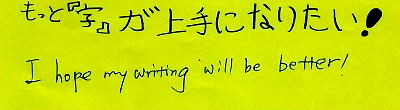 もっと『字』が上手になりたい!
I hope my writing will be better!